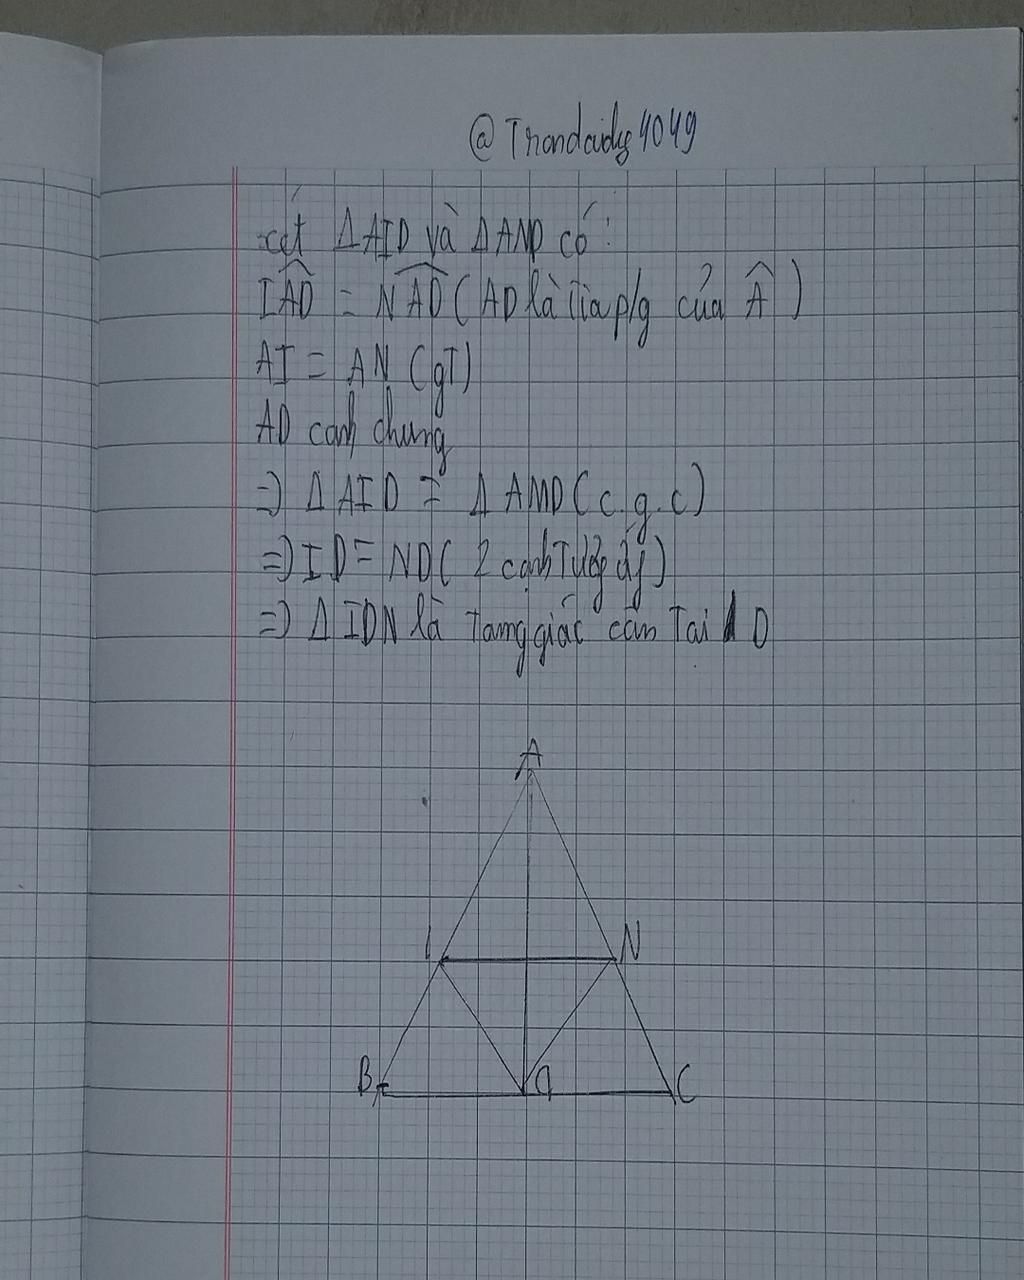 @Trandaidug4049
xét ΔAID và ΔAND có:
IAD = NAD ( AD là Tia p/g của Â )
AI = AN (gT)
AD canh chung
=> ΔAID = ΔAMD ( c.g.c )
=> ID = ND ( 2 cạnh )
=> ΔIDN là Tamg giác cân Tai D
A
I N
B D C